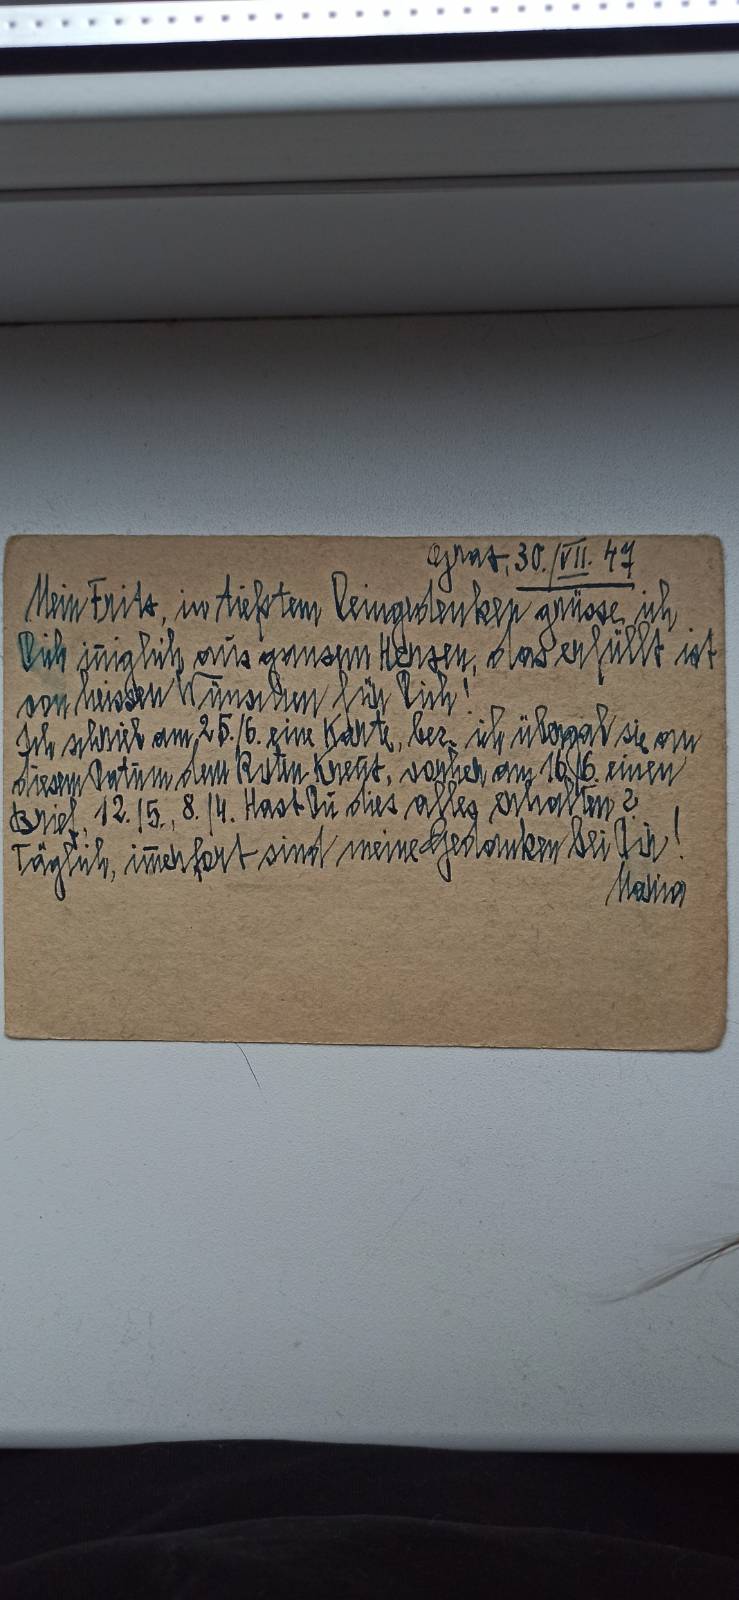 Graz, 30./VII. 47
Mein Fritz, in tiefstem Deingedenken grüsse ich
Dich inniglich aus ganzem Herzen, das erfüllt ist
von heissen Wünschen für Dich!
Ich schrieb am 25./6. eine Karte, bez. ich übergab sie an
diesem Datum dem Roten Kreuz, vorher am 16./6. einen
Brief, 12./5., 8./4. Hast Du dies alles erhalten?
Täglich, immerfort sind meine Gedanken bei Dir!